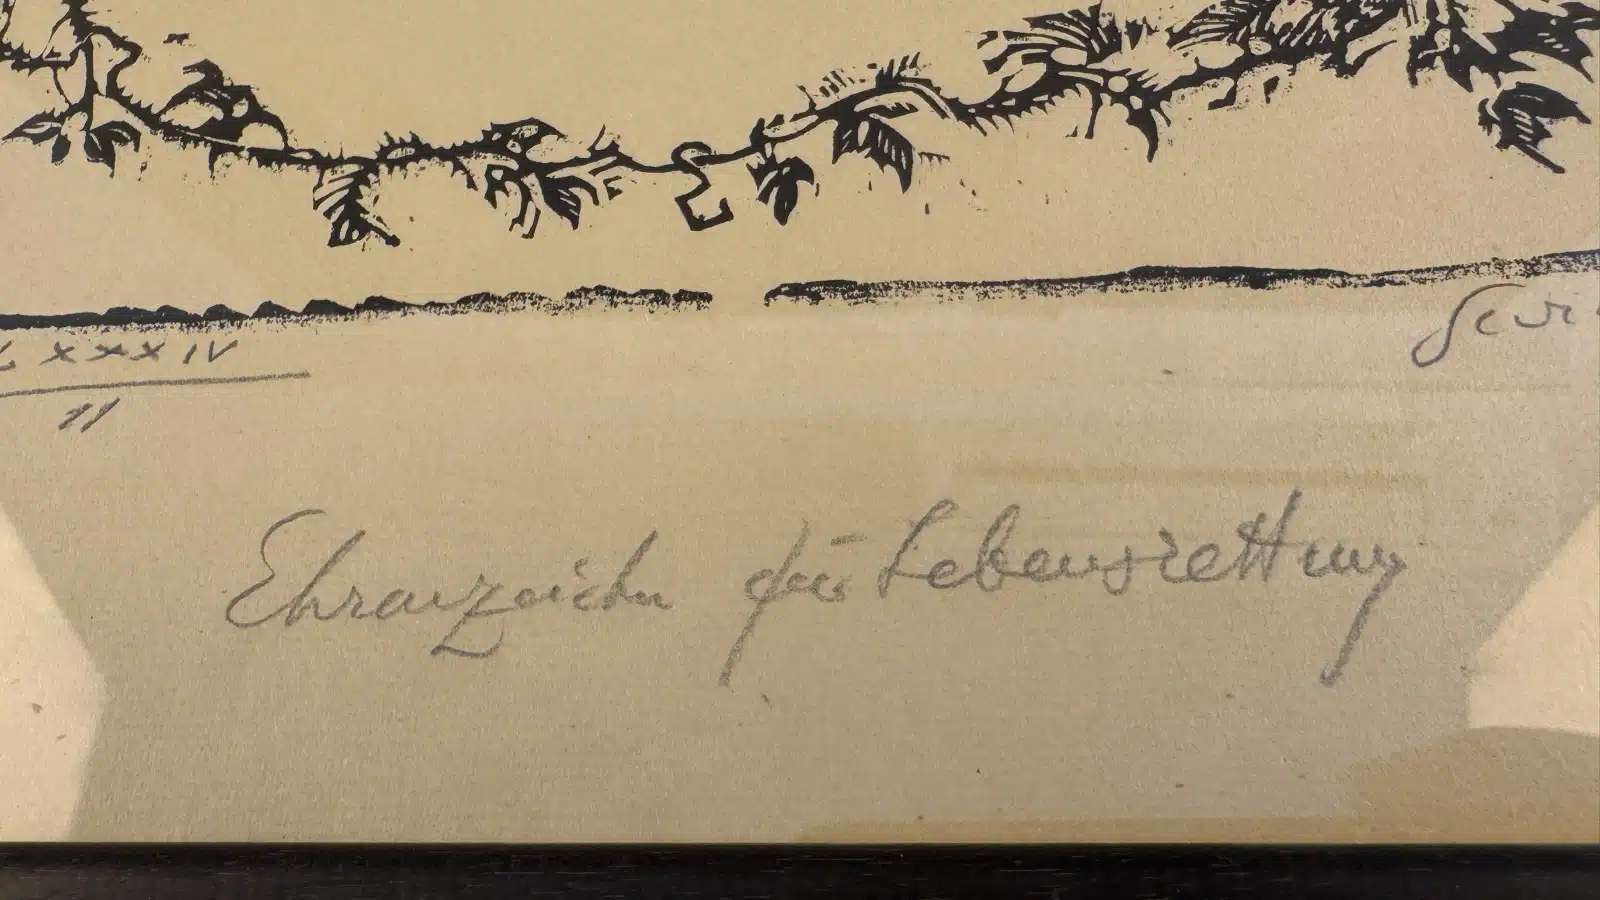 XXXIV
11
Ehrenzeichen für Lebensrettung